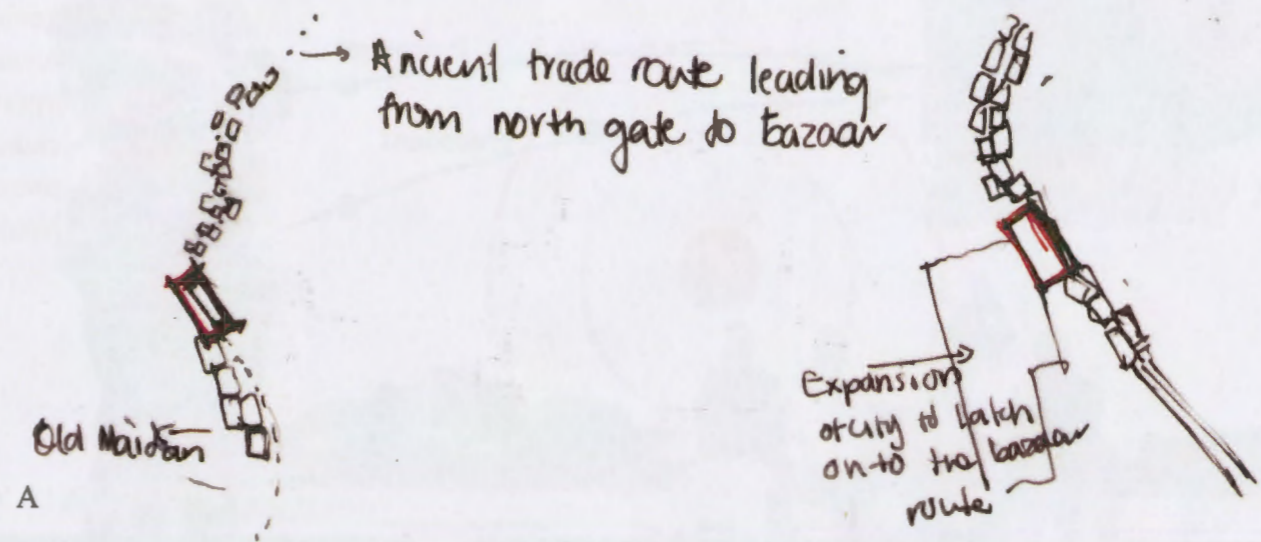 → Ancient trade route leading
from north gate to bazaar
Old Maidan
Expansion
of city to latch
on to the bazaar
route
A